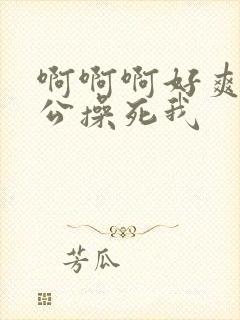 啊啊啊好爽
公操死我
芳瓜